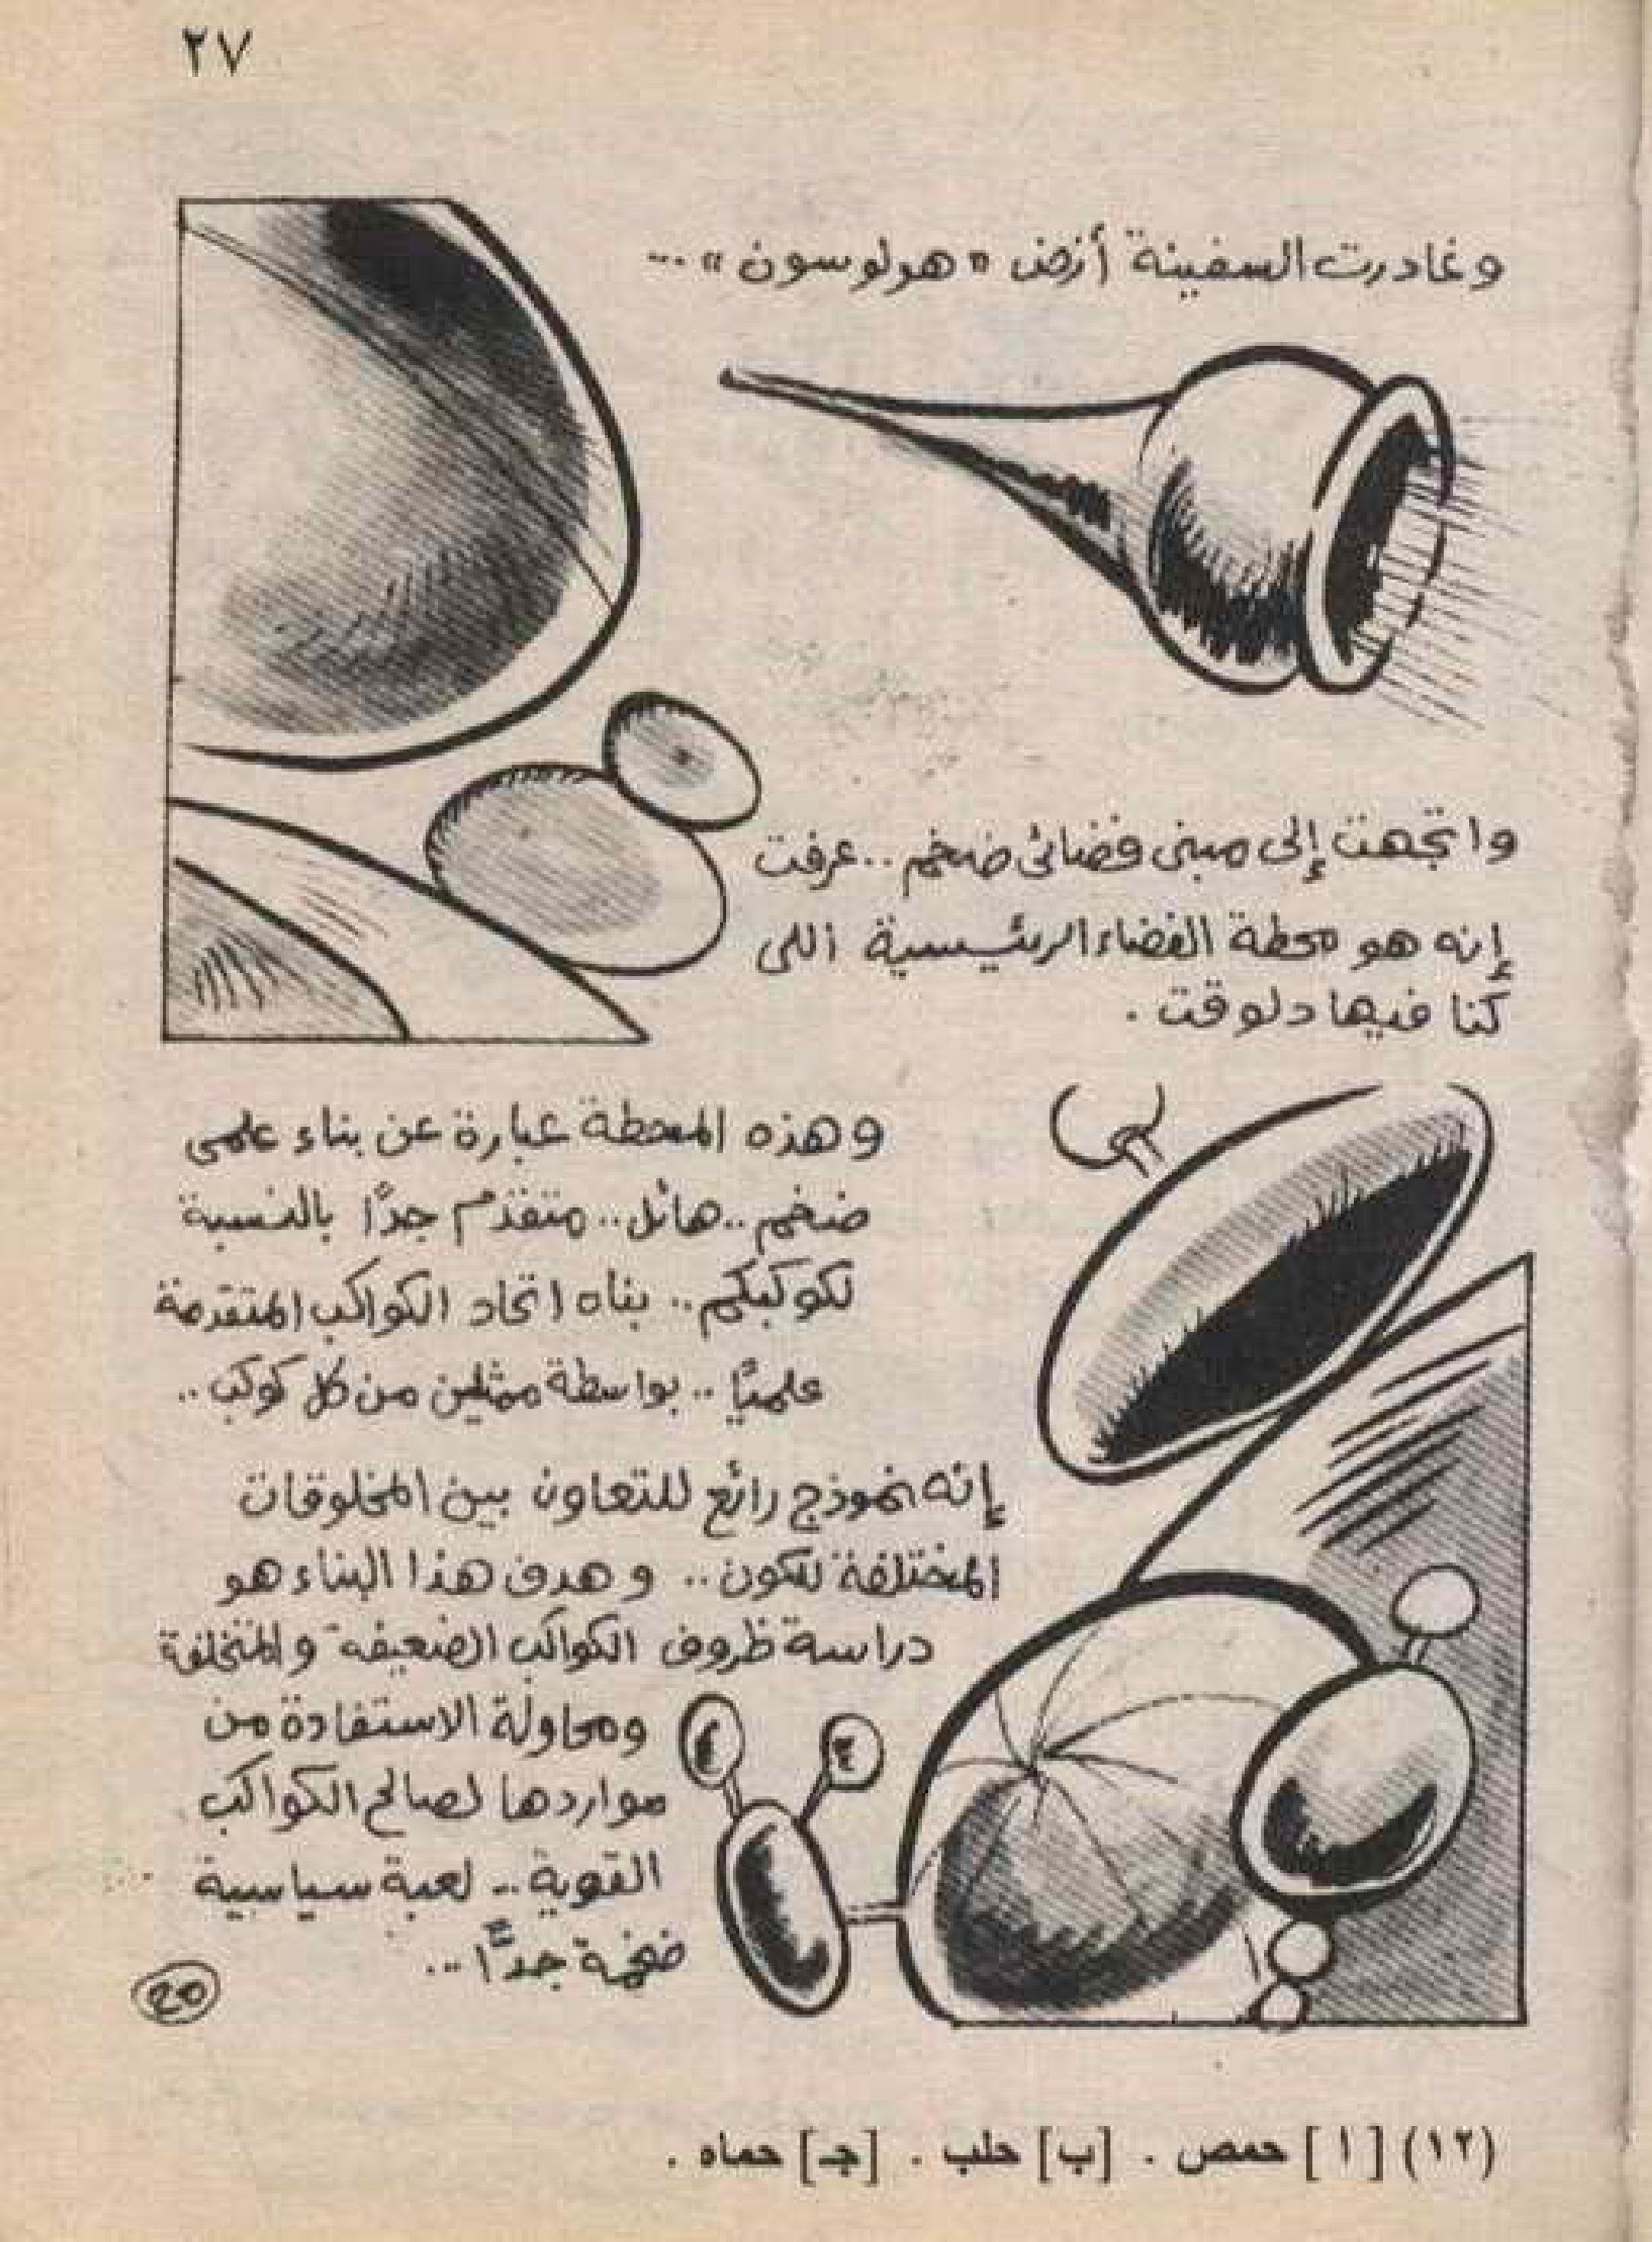 ٢٧
وغادرت السفينة أرض «هولوسون» ...
واتجهت إلى مبنى فضائى ضخم .. عرفت
إنه هو محطة الفضاء الرئيسية اللى
كنا فيها دلوقت .
وهذه المحطة عبارة عن بناء علمى
ضخم .. هائل .. متقدم جدًا بالنسبة
لكوكبكم .. بناه اتحاد الكواكب المتقدمة
علميًا .. بواسطة ممثلين من كل كوكب ..
إنه نموذج رائع للتعاون بين المخلوقات
المختلفة للكون .. وهدف هذا البناء هو
دراسة ظروف الكواكب الضعيفة والمتخلفة
ومحاولة الاستفادة من
مواردها لصالح الكواكب
القوية .. لعبة سياسية
ضخمة جدًا ...
20
(١٢) [ ا ] حمص . [ب] حلب . [جـ] حماه .